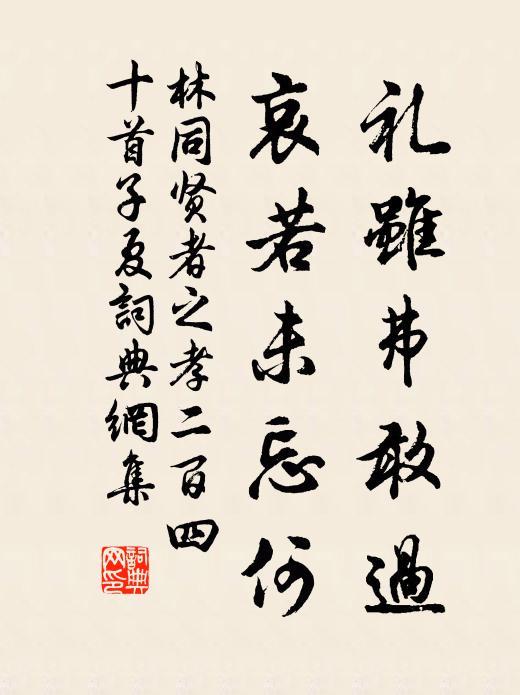 礼雖弗敢過
哀若未忘何
林同贤者之孝二百四
十首子夏詞典網集
詞典网印